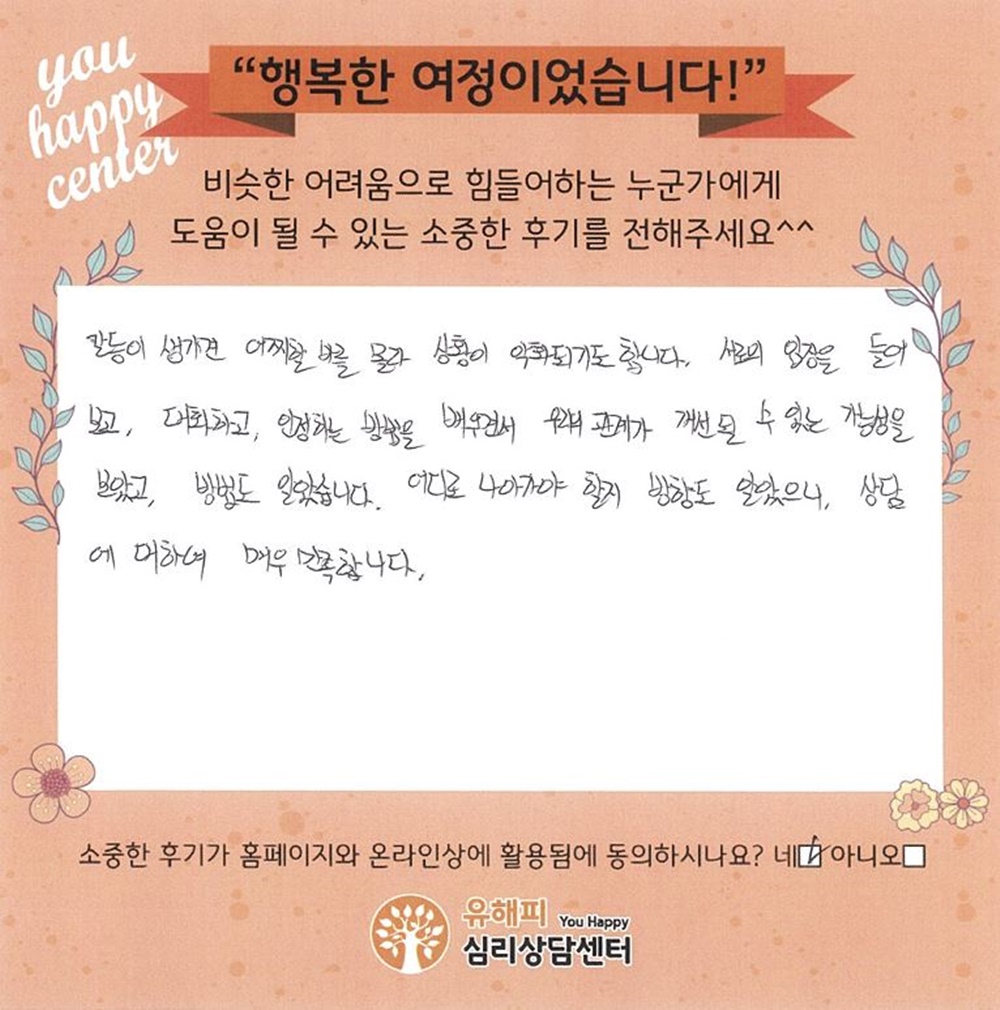 you
happy
center
“행복한 여정이었습니다!”
비슷한 어려움으로 힘들어하는 누군가에게
도움이 될 수 있는 소중한 후기를 전해주세요^^
갈등이 생기면 어찌할 바를 몰라 상황이 악화되기도 합니다. 서로의 입장을 들어
보고, 대화하고, 인정하는 방법을 배우면서 우리 관계가 개선 될 수 있는 가능성을
보았고, 방법도 알았습니다. 어디로 나아가야 할지 방향도 알았으니, 상담
에 대하여 매우 만족합니다.
소중한 후기가 홈페이지와 온라인상에 활용됨에 동의하시나요? 네 아니오
유해피 You Happy
심리상담센터